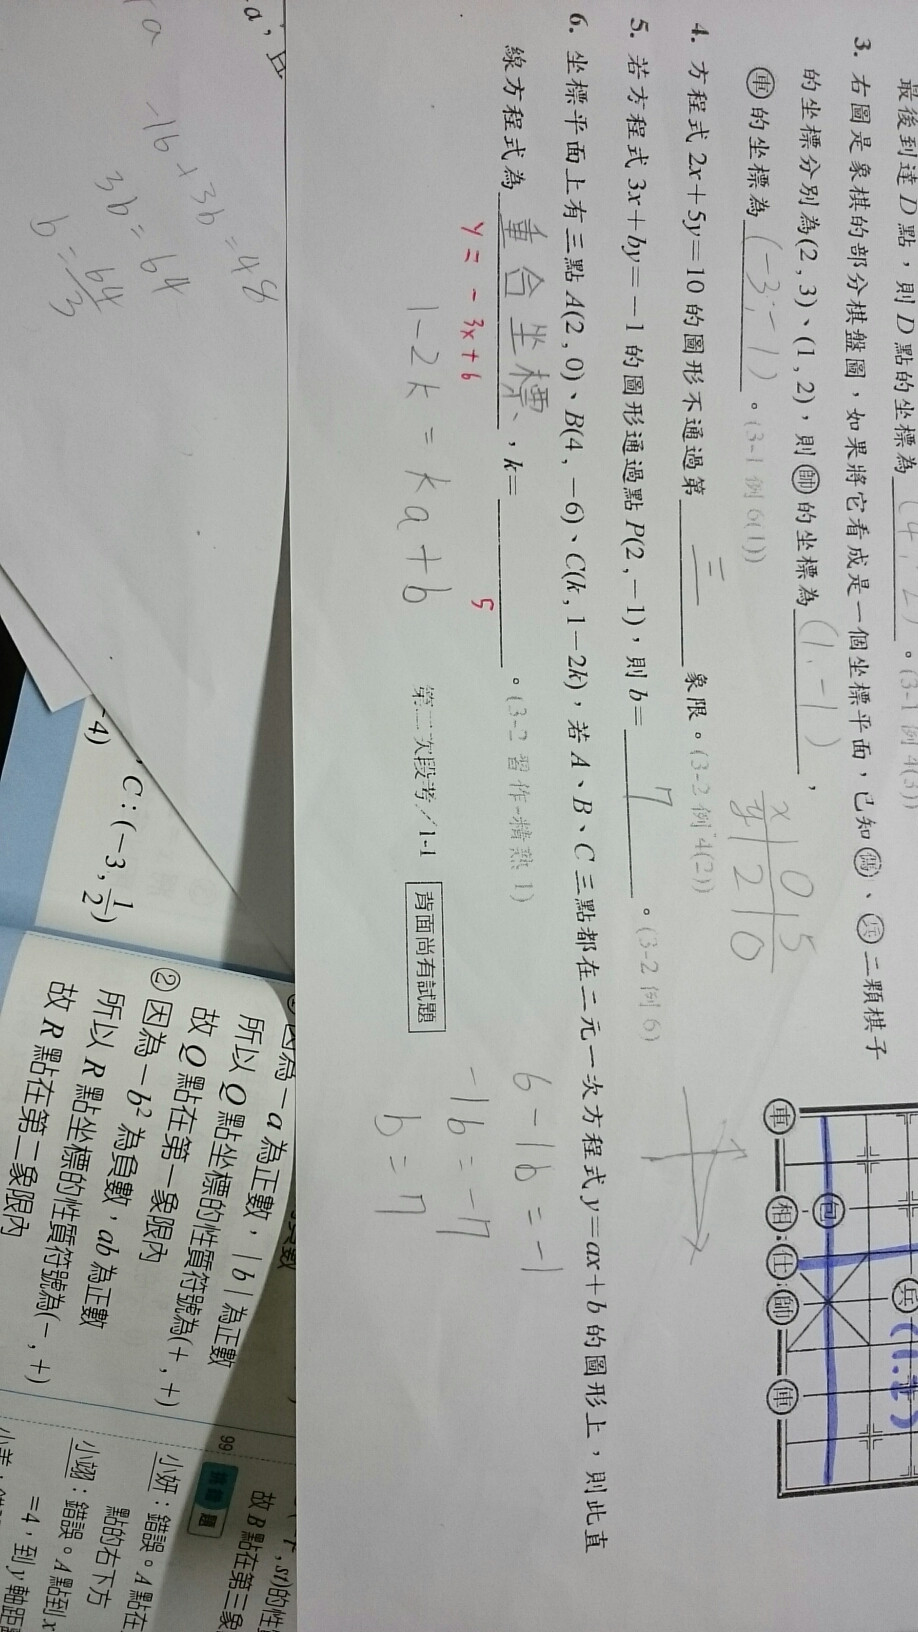 最後到達D點，則D點的坐標為
。(3-1 例4(3))
3. 右圖是象棋的部分棋盤圖，如果將它看成是一個坐標平面，已知傌、兵二顆棋子
的坐標分別為(2 , 3)、(1 , 2)，則帥的坐標為 (1,-1) ，
車的坐標為 (-3,-1) 。(3-1 例6(1))
車 相 仕 帥 俥
包
兵
(1.2)
4. 方程式 2x+5y=10 的圖形不通過第 三 象限。(3-2 例4(2))
x 0 5
y 2 0
5. 若方程式 3x+by=-1 的圖形通過點 P(2 , -1)，則 b= 7 。(3-2 例6)
6. 坐標平面上有三點 A(2 , 0)、B(4 , -6)、C(k , 1-2k)，若 A、B、C 三點都在二元一次方程式 y=ax+b 的圖形上，則此直
線方程式為 重合坐標 ，k= 。(3-2 習作-精熟1)
y = -3x+6
5
1-2k = ka+b
6-1b=-1
-1b=-7
b=7
第二次段考／1-1
背面尚有試題
-16+3b=48
3b=64
b=64/3
-4)
C：(-3 , 1/2)
因為 -a 為正數，|b| 為正數
所以 Q 點坐標的性質符號為(+ , +)
故 Q 點在第一象限內
② 因為 -b² 為負數，ab 為正數
所以 R 點坐標的性質符號為(- , +)
故 R 點在第二象限內
99
故 B 點在第三象
小妍：錯誤。A 點在
點的右下方
小翊：錯誤。A 點到 x
=4，到 y 軸距